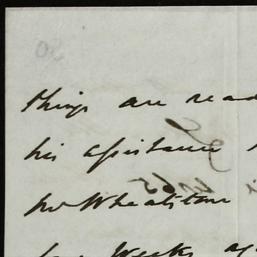 things are read
his assistance
Mr Wheatstone
few Weeks ag